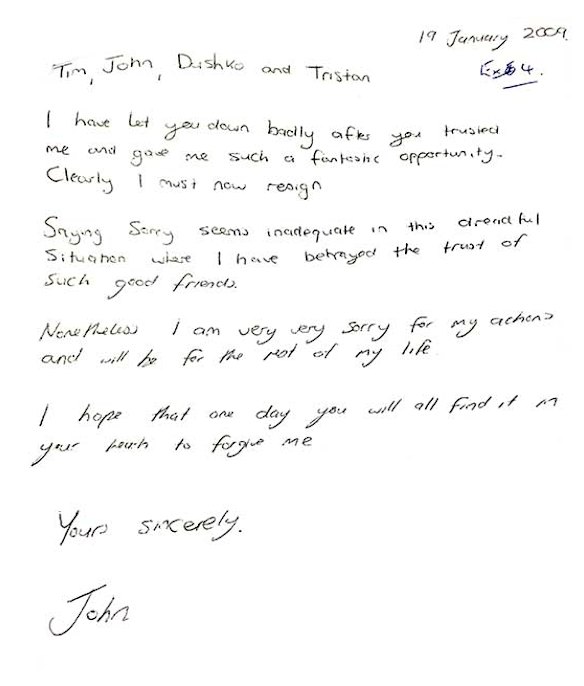 19 January 2009.
Ex 4.
Tim, John, Dushko and Tristan
I have let you down badly after you trusted
me and gave me such a fantastic opportunity.
Clearly I must now resign
Saying Sorry seems inadequate in this dreadful
Situation where I have betrayed the trust of
such good friends.
Nonetheless I am very very sorry for my actions
and will be for the rest of my life
I hope that one day you will all find it in
your hearts to forgive me
Yours sincerely.
John